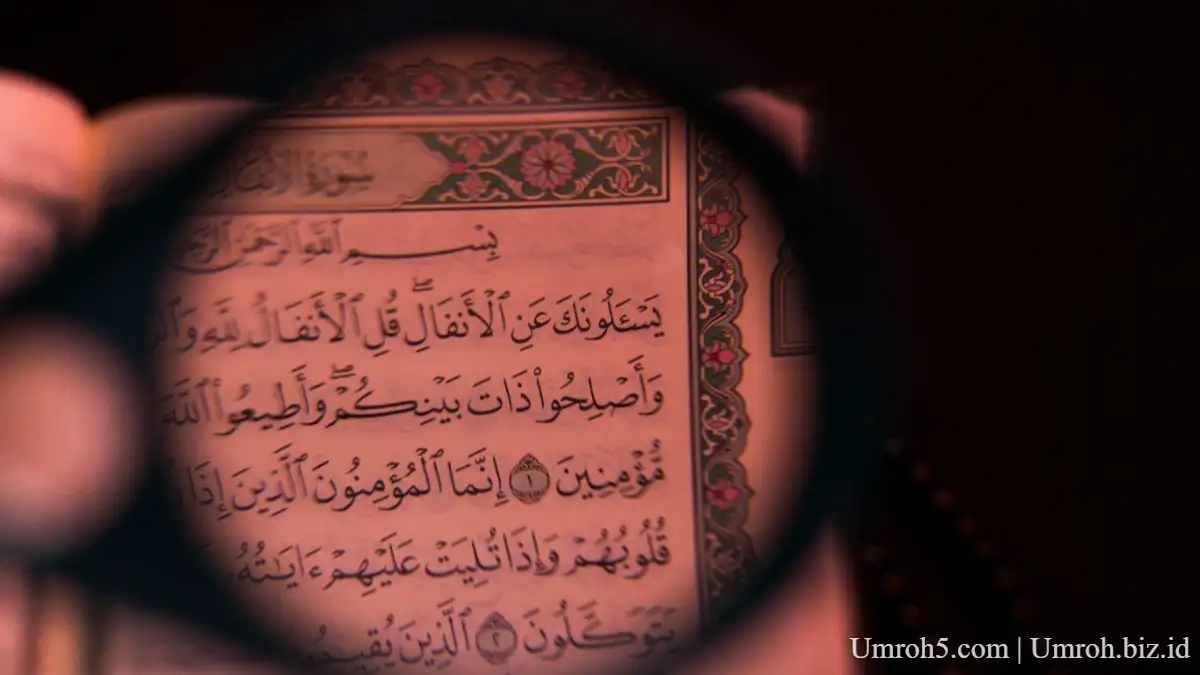 سورة الأنفال
بِسْمِ ٱللَّهِ ٱلرَّحْمَٰنِ
يَسْـَٔلُونَكَ عَنِ ٱلْأَنفَالِۖ قُلِ ٱلْأَنفَالُ لِلَّهِ
وَأَصْلِحُوا۟ ذَاتَ بَيْنِكُمْۖ وَأَطِيعُوا۟ ٱللَّهَ
مُّؤْمِنِينَ ١ إِنَّمَا ٱلْمُؤْمِنُونَ ٱلَّذِينَ إِذَا
قُلُوبُهُمْ وَإِذَا تُلِيَتْ عَلَيْهِمْ ءَايَـٰتُهُۥ
يَتَوَكَّلُونَ ٢ ٱلَّذِينَ
Umroh5.com | Umroh.biz.id